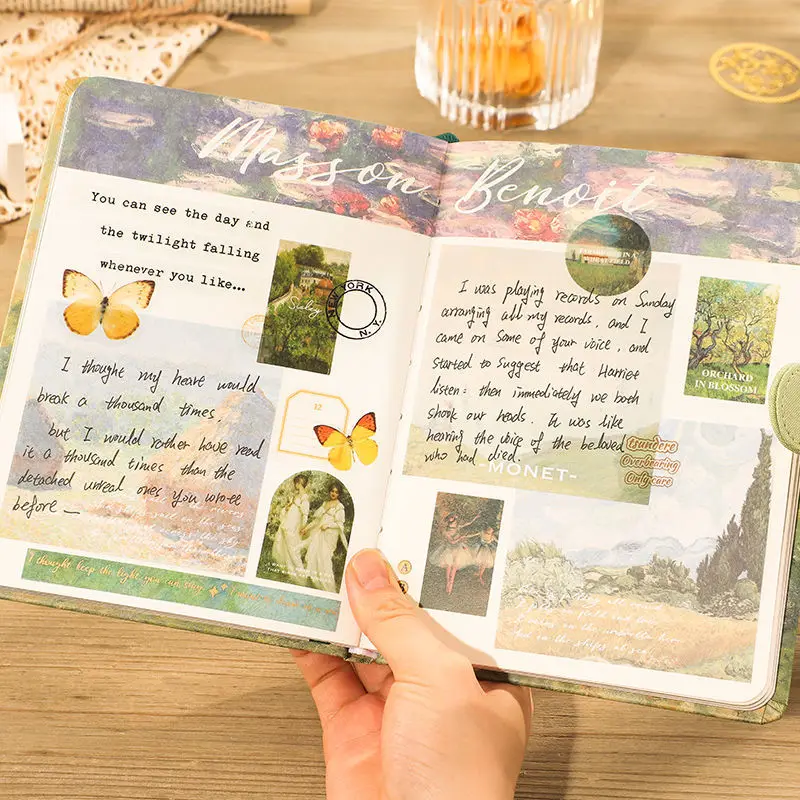 Masson Benoit
You can see the day and
the twilight falling
whenever you like...
Salty
NEW YORK
N.Y.
I thought my heart would
break a thousand times.
but I would rather have read
it a thousand times than the
detached unreal ones you wrote
before —
12
I thought keep the light you run stay
I was playing records on Sunday
arranging all my records, and I
came on some of your voice, and
started to suggest that Harriet
listen: then immediately we both
shook our heads. It was like
hearing the voice of the beloved
who had died.
-MONET-
IN A
FIELD
ORCHARD
IN BLOSSOM
tsundere
Overbearing
Only care
A